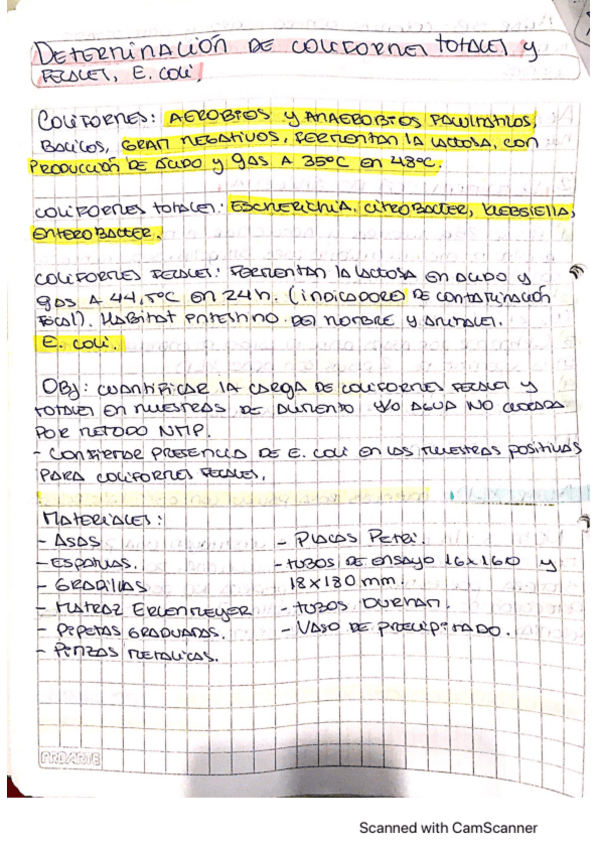 DETERMINACIÓN DE COLIFORMES TOTALES y
FECALES, E. COLI.
COLIFORMES: AEROBIOS y ANAEROBIOS FACULTATIVOS,
BACILOS, GRAM NEGATIVOS, FERMENTAN LA LACTOSA, CON
PRODUCCIÓN DE ÁCIDO y gas A 35°C en 48°C.
COLIFORMES TOTALES: ESCHERICHIA, CITROBACTER, KLEBSIELLA,
ENTEROBACTER.
COLIFORMES FECALES: FERMENTAN LA LACTOSA EN ÁCIDO y
gas A 44,5°C en 24h. (indicadores DE CONTAMINACIÓN
FECAL). HABITAT INTESTINO DEL HOMBRE y ANIMALES.
E. COLI.
OBJ: CUANTIFICAR LA CARGA DE COLIFORMES FECALES y
TOTALES EN MUESTRAS DE ALIMENTO Y/O AGUA NO CLORADA
POR METODO NMP.
- PRESENCIA DE E. COLI EN LAS MUESTRAS POSITIVAS
PARA COLIFORMES FECALES.
MATERIALES:
- ASAS
- ESPATULAS.
- GRADILLAS
- MATRAZ ERLENMEYER
- PIPETAS GRADUADAS.
- PINZAS METALICAS.
- PLACAS PETRI.
- TUBOS DE ENSAYO 16x160 y
18x180 mm.
- TUBOS DURHAM.
- VASO DE PRECIPITADO.
PROARTE
Scanned with CamScanner